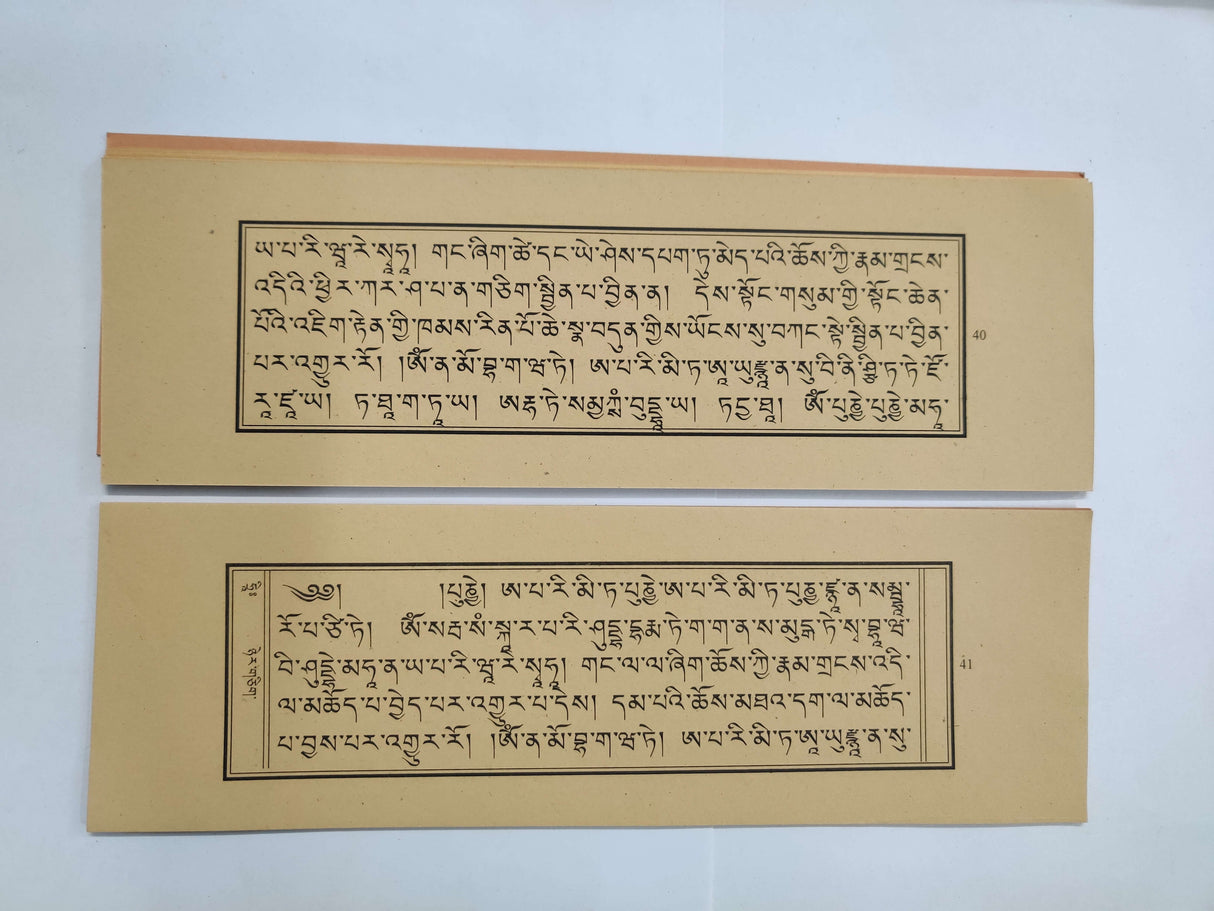 ཡ་པ་རི་ཝཱ་རེ་སྭཱ་ཧཱ། གང་ཞིག་ཚེ་དང་ཡེ་ཤེས་དཔག་ཏུ་མེད་པའི་ཆོས་ཀྱི་རྣམ་གྲངས་
འདིའི་ཕྱིར་ཀར་ཤ་པ་ན་གཅིག་སྦྱིན་པ་བྱིན་ན། དེས་སྟོང་གསུམ་གྱི་སྟོང་ཆེན་
པོའི་འཇིག་རྟེན་གྱི་ཁམས་རིན་པོ་ཆེ་སྣ་བདུན་གྱིས་ཡོངས་སུ་བཀང་སྟེ་སྦྱིན་པ་བྱིན་
པར་འགྱུར་རོ། །ཨོཾ་ན་མོ་བྷ་ག་ཝ་ཏེ། ཨ་པ་རི་མི་ཏ་ཨཱ་ཡུརྫྙཱ་ན་སུ་བི་ནི་ཤྩི་ཏ་ཏེ་ཛོ་
རཱ་ཛཱ་ཡ། ཏ་ཐཱ་ག་ཏཱ་ཡ། ཨརྷ་ཏེ་སམྱཀྶཾ་བུདྡྷཱ་ཡ། ཏདྱ་ཐཱ། ཨོཾ་པུཎྱེ་པུཎྱེ་མཧཱ་
40
༄༅། །པུཎྱེ། ཨ་པ་རི་མི་ཏ་པུཎྱེ་ཨ་པ་རི་མི་ཏ་པུཎྱ་ཛྙཱ་ན་སམྦྷཱ་
རོ་པ་ཙི་ཏེ། ཨོཾ་སརྦ་སཾ་སྐཱ་ར་པ་རི་ཤུདྡྷ་དྷརྨ་ཏེ་ག་ག་ན་ས་མུདྒ་ཏེ་སྭ་བྷཱ་ཝ་
བི་ཤུདྡྷེ་མཧཱ་ན་ཡ་པ་རི་ཝཱ་རེ་སྭཱ་ཧཱ། གང་ལ་ལ་ཞིག་ཆོས་ཀྱི་རྣམ་གྲངས་འདི་
ལ་མཆོད་པ་བྱེད་པར་འགྱུར་པ་དེས། དམ་པའི་ཆོས་མཐའ་དག་ལ་མཆོད་
པ་བྱས་པར་འགྱུར་རོ། །ཨོཾ་ན་མོ་བྷ་ག་ཝ་ཏེ། ཨ་པ་རི་མི་ཏ་ཨཱ་ཡུརྫྙཱ་ན་སུ་
ཉེར་གཅིག
41